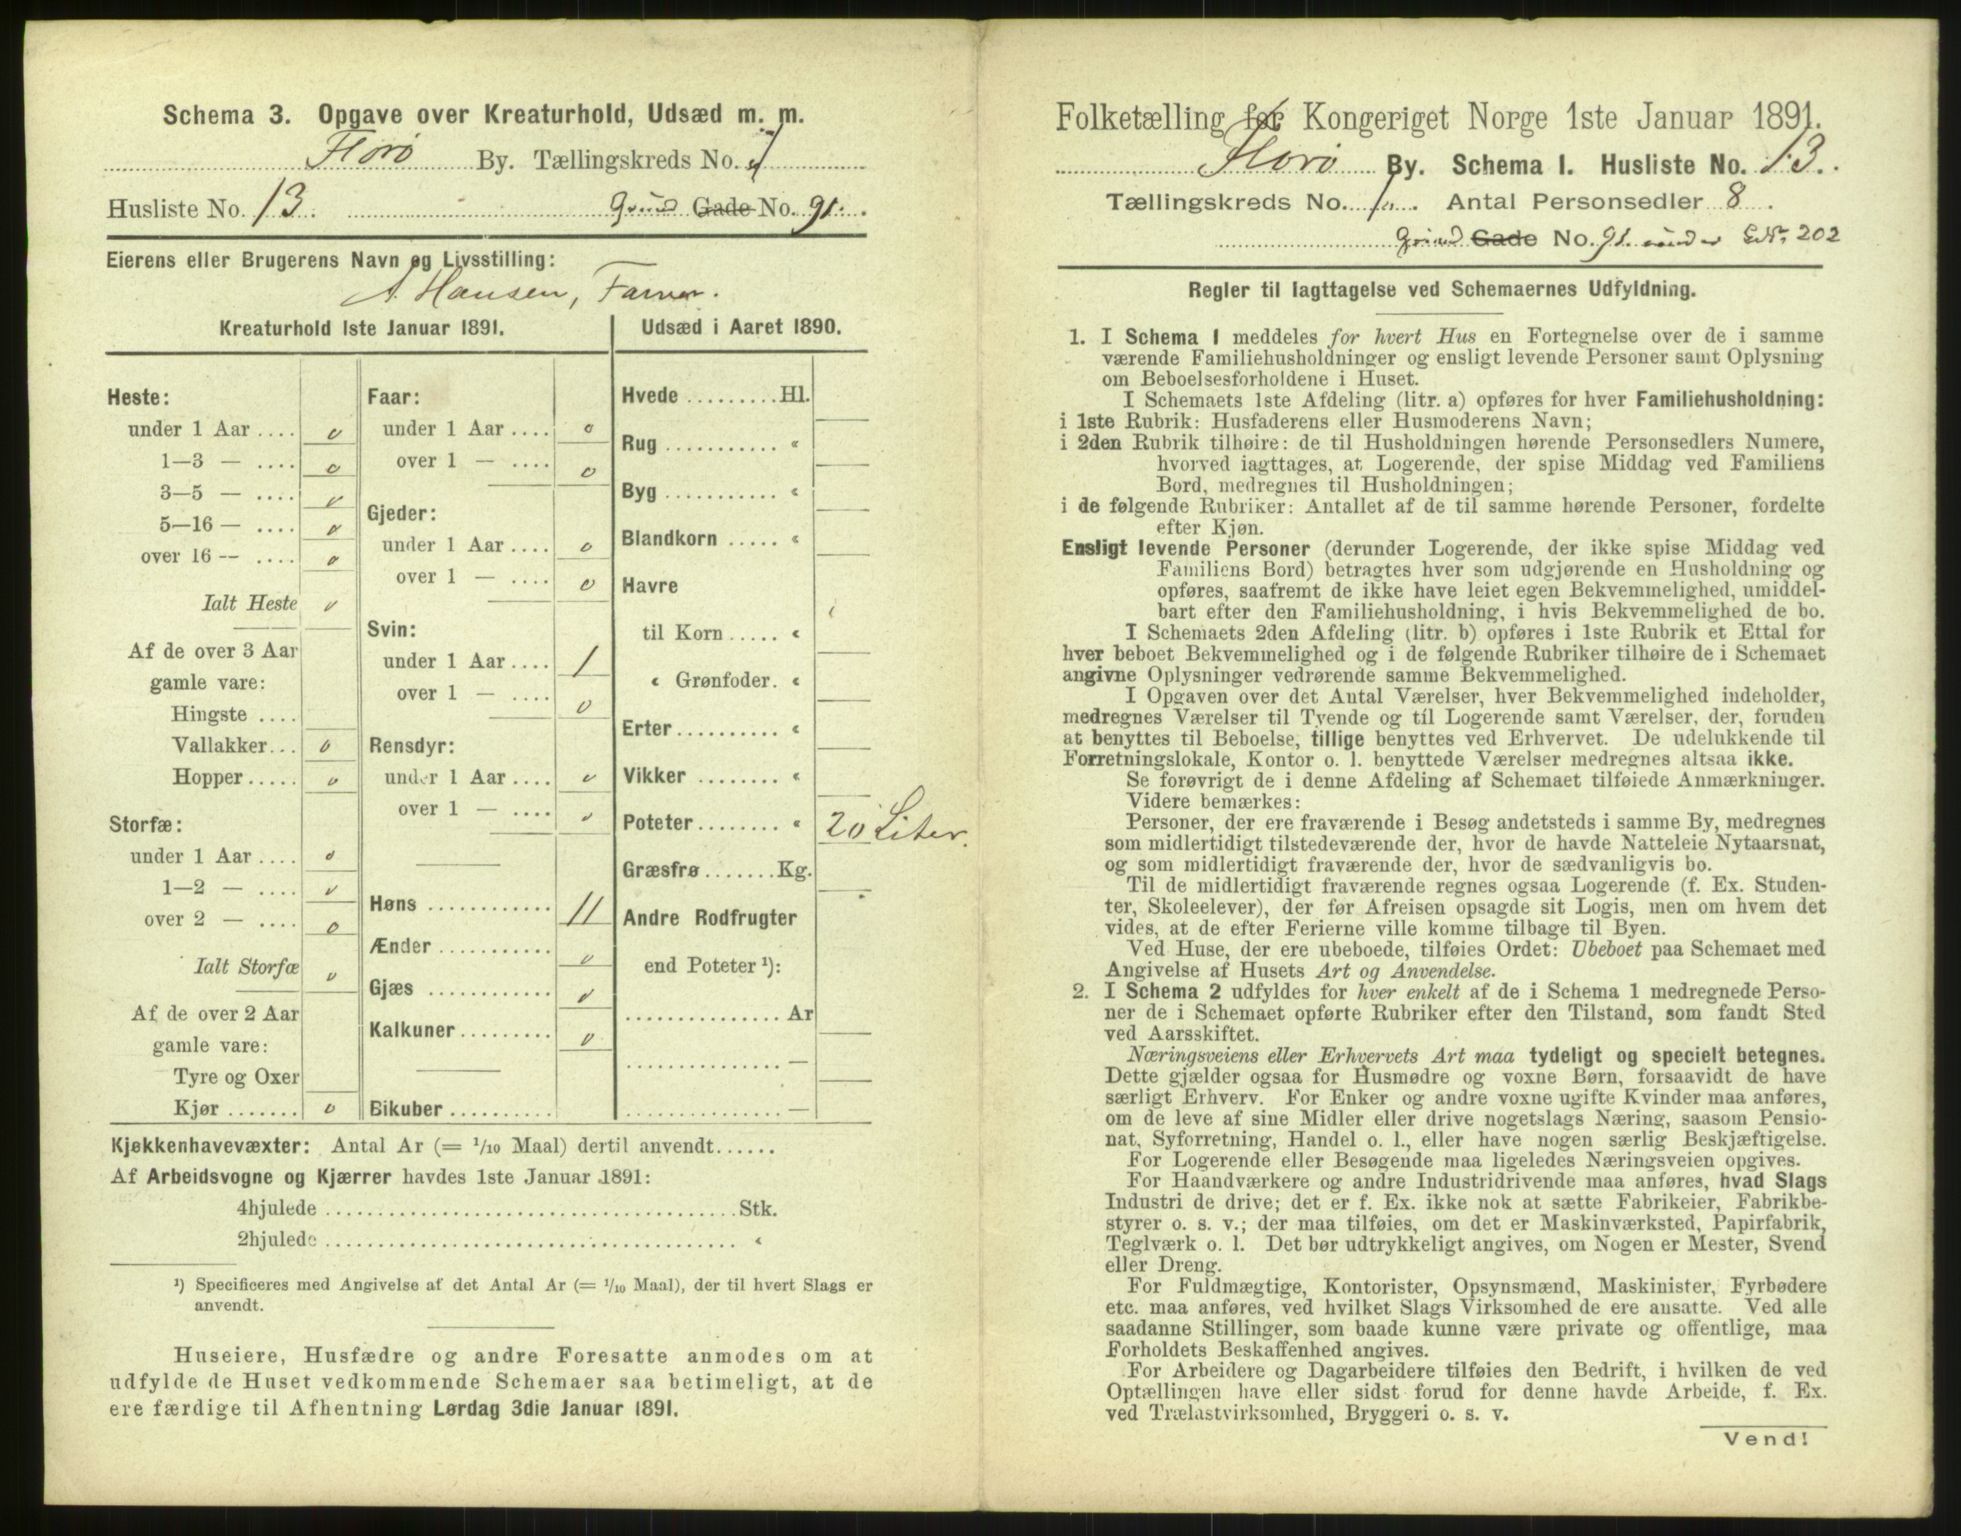 Schema 3. Opgave over Kreaturhold, Udsæd m. m.
Florø By. Tællingskreds No. 1
Husliste No. 13. Grund Gade No. 91.
Eierens eller Brugerens Navn og Livsstilling:
A. Hansen, Farver.
Kreaturhold 1ste Januar 1891.
Heste:
under 1 Aar .... 0
1—3 — .... 0
3—5 — .... 0
5—16 — .... 0
over 16 — .... 0
Ialt Heste 0
Af de over 3 Aar
gamle vare:
Hingste ....
Vallakker... 0
Hopper..... 0
Storfæ:
under 1 Aar .... 0
1—2 — .... 0
over 2 — .... 0
Ialt Storfæ 0
Af de over 2 Aar
gamle vare:
Tyre og Oxer
Kjør ........ 0
Faar:
under 1 Aar .... 0
over 1 — .... 0
Gjeder:
under 1 Aar .... 0
over 1 — .... 0
Svin:
under 1 Aar .... 1
over 1 — .... 0
Rensdyr:
under 1 Aar .... 0
over 1 — .... 0
Høns ............ 11
Ænder ........... 0
Gjæs ............ 0
Kalkuner......... 0
Bikuber..........
Udsæd i Aaret 1890.
Hvede ......... Hl.
Rug ........... «
Byg ........... «
Blandkorn ..... «
Havre
til Korn..... «
« Grønfoder. «
Erter.......... «
Vikker ........ «
Poteter........ « 20 Liter.
Græsfrø....... Kg.
Andre Rodfrugter
end Poteter ¹):
............... Ar
............... —
............... —
Kjøkkenhavevæxter: Antal Ar (= 1/10 Maal) dertil anvendt......
Af Arbeidsvogne og Kjærrer havdes 1ste Januar 1891:
4hjulede ..................................... Stk.
2hjulede ..................................... «
¹) Specificeres med Angivelse af det Antal Ar (= 1/10 Maal), der til hvert Slags er
anvendt.
Huseiere, Husfædre og andre Foresatte anmodes om at
udfylde de Huset vedkommende Schemaer saa betimeligt, at de
ere færdige til Afhentning Lørdag 3die Januar 1891.
Folketælling for Kongeriget Norge 1ste Januar 1891.
Florø By. Schema 1. Husliste No. 13.
Tællingskreds No. 1. Antal Personsedler 8.
Grund Gade No. 91. under 202
Regler til Iagttagelse ved Schemaernes Udfyldning.
1. I Schema 1 meddeles for hvert Hus en Fortegnelse over de i samme
værende Familiehusholdninger og ensligt levende Personer samt Oplysning
om Beboelsesforholdene i Huset.
I Schemaets 1ste Afdeling (litr. a) opføres for hver Familiehusholdning:
i 1ste Rubrik: Husfaderens eller Husmoderens Navn;
i 2den Rubrik tilhøire: de til Husholdningen hørende Personsedlers Numere,
hvorved iagttages, at Logerende, der spise Middag ved Familiens
Bord, medregnes til Husholdningen;
i de følgende Rubriker: Antallet af de til samme hørende Personer, fordelte
efter Kjøn.
Ensligt levende Personer (derunder Logerende, der ikke spise Middag ved
Familiens Bord) betragtes hver som udgjørende en Husholdning og
opføres, saafremt de ikke have leiet egen Bekvemmelighed, umiddel-
bart efter den Familiehusholdning, i hvis Bekvemmelighed de bo.
I Schemaets 2den Afdeling (litr. b) opføres i 1ste Rubrik et Ettal for
hver beboet Bekvemmelighed og i de følgende Rubriker tilhøire de i Schemaet
angivne Oplysninger vedrørende samme Bekvemmelighed.
I Opgaven over det Antal Værelser, hver Bekvemmelighed indeholder,
medregnes Værelser til Tyende og til Logerende samt Værelser, der, foruden
at benyttes til Beboelse, tillige benyttes ved Erhvervet. De udelukkende til
Forretningslokale, Kontor o. l. benyttede Værelser medregnes altsaa ikke.
Se forøvrigt de i denne Afdeling af Schemaet tilføiede Anmærkninger.
Videre bemærkes:
Personer, der ere fraværende i Besøg andetsteds i samme By, medregnes
som midlertidigt tilstedeværende der, hvor de havde Natteleie Nytaarsnat,
og som midlertidigt fraværende der, hvor de sædvanligvis bo.
Til de midlertidigt fraværende regnes ogsaa Logerende (f. Ex. Studen-
ter, Skoleelever), der før Afreisen opsagde sit Logis, men om hvem det
vides, at de efter Ferierne ville komme tilbage til Byen.
Ved Huse, der ere ubeboede, tilføies Ordet: Ubeboet paa Schemaet med
Angivelse af Husets Art og Anvendelse.
2. I Schema 2 udfyldes for hver enkelt af de i Schema 1 medregnede Perso-
ner de i Schemaet opførte Rubriker efter den Tilstand, som fandt Sted
ved Aarsskiftet.
Næringsveiens eller Erhvervets Art maa tydeligt og specielt betegnes.
Dette gjælder ogsaa for Husmødre og voxne Børn, forsaavidt de have
særligt Erhverv. For Enker og andre voxne ugifte Kvinder maa anføres,
om de leve af sine Midler eller drive nogetslags Næring, saasom Pensio-
nat, Syforretning, Handel o. l., eller have nogen særlig Beskjæftigelse.
For Logerende eller Besøgende maa ligeledes Næringsveien opgives.
For Haandværkere og andre Industridrivende maa anføres, hvad Slags
Industri de drive; det er f. Ex. ikke nok at sætte Fabrikeier, Fabrikbe-
styrer o. s. v.; der maa tilføies, om det er Maskinværksted, Papirfabrik,
Teglværk o. l. Det bør udtrykkeligt angives, om Nogen er Mester, Svend
eller Dreng.
For Fuldmægtige, Kontorister, Opsynsmænd, Maskinister, Fyrbødere
etc. maa anføres, ved hvilket Slags Virksomhed de ere ansatte. Ved alle
saadanne Stillinger, som baade kunne være private og offentlige, maa
Forholdets Beskaffenhed angives.
For Arbeidere og Dagarbeidere tilføies den Bedrift, i hvilken de ved
Optællingen have eller sidst forud for denne havde Arbeide, f. Ex.
ved Trælastvirksomhed, Bryggeri o. s. v.
Vend!